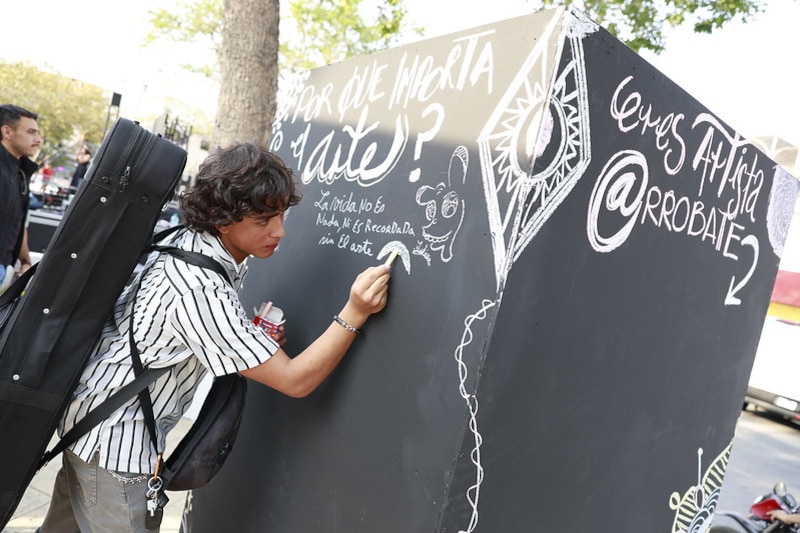 ¿POR QUE IMPORTA
el arte?
La vida No Es
Nada, Ni Es Recordada
sin El arte
eres
ARTista
@RROBATE